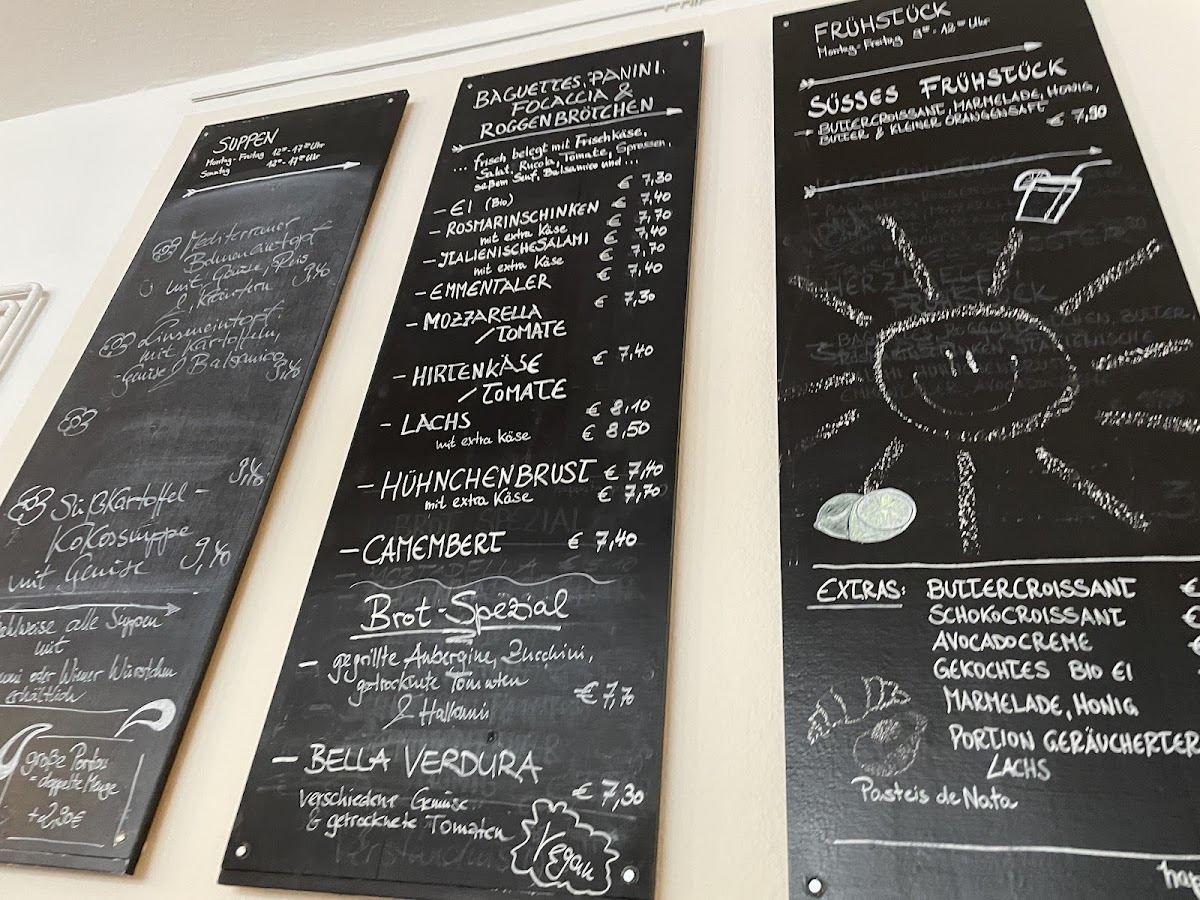 SUPPEN
Montag-Freitag 12⁰⁰-17⁰⁰ Uhr
Sonntag 12⁰⁰-17⁰⁰ Uhr
Mediterraner
Bohneneintopf
mit Gemüse, Reis
& Kräutern 9,40
Linseneintopf
mit Kartoffeln,
Gemüse & Balsamico
9,40
9,40
Süßkartoffel-
Kokossuppe
mit Gemüse 9,40
alle Suppen
mit
oder Wiener Würstchen
erhältlich
große Portion
- doppelte Menge
+ 2,90€
BAGUETTES, PANINI,
FOCACCIA &
ROGGENBRÖTCHEN
... frisch belegt mit Frischkäse,
Salat, Rucola, Tomate, Sprossen,
süßem Senf, Balsamico und ...
- EI (Bio) € 7,30
- ROSMARINSCHINKEN € 7,40
mit extra Käse € 7,70
- ITALIENISCHE SALAMI € 7,40
mit extra Käse € 7,70
- EMMENTALER € 7,40
- MOZZARELLA € 7,30
/TOMATE
- HIRTENKÄSE € 7,40
/TOMATE
- LACHS € 8,10
mit extra Käse € 8,50
- HÜHNCHENBRUST € 7,40
mit extra Käse € 7,70
- CAMEMBERT € 7,40
Brot-Spezial
- gegrillte Aubergine, Zucchini,
getrocknete Tomaten
& Halloumi € 7,70
- BELLA VERDURA
verschiedene Gemüse € 7,30
& getrocknete Tomaten
Vegan
FRÜHSTÜCK
Montag-Freitag 9⁰⁰-12⁰⁰ Uhr
SÜSSES FRÜHSTÜCK
BUTTERCROISSANT, MARMELADE, HONIG,
BUTTER & KLEINER ORANGENSAFT € 7,90
EXTRAS: BUTTERCROISSANT €
SCHOKOCROISSANT €
AVOCADOCREME €
GEKOCHTES BIO EI
MARMELADE, HONIG
PORTION GERÄUCHERTER
LACHS
Pasteis de Nata